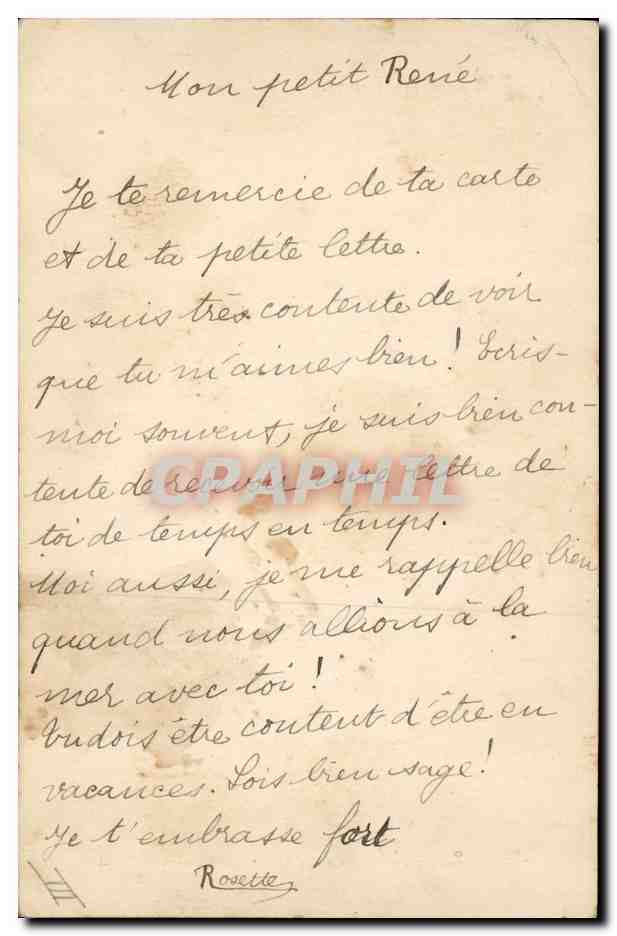 Mon petit René
Je te remercie de ta carte
et de ta petite lettre.
Je suis très contente de voir
que tu m'aimes bien! Ecris-
moi souvent, je suis bien con-
tente de recevoir une lettre de
toi de temps en temps.
Moi aussi, je me rappelle bien
quand nous allions à la
mer avec toi!
Tu dois être content d'être en
vacances. Sois bien sage!
Je t'embrasse fort
Rosette
III
CPAPHIL